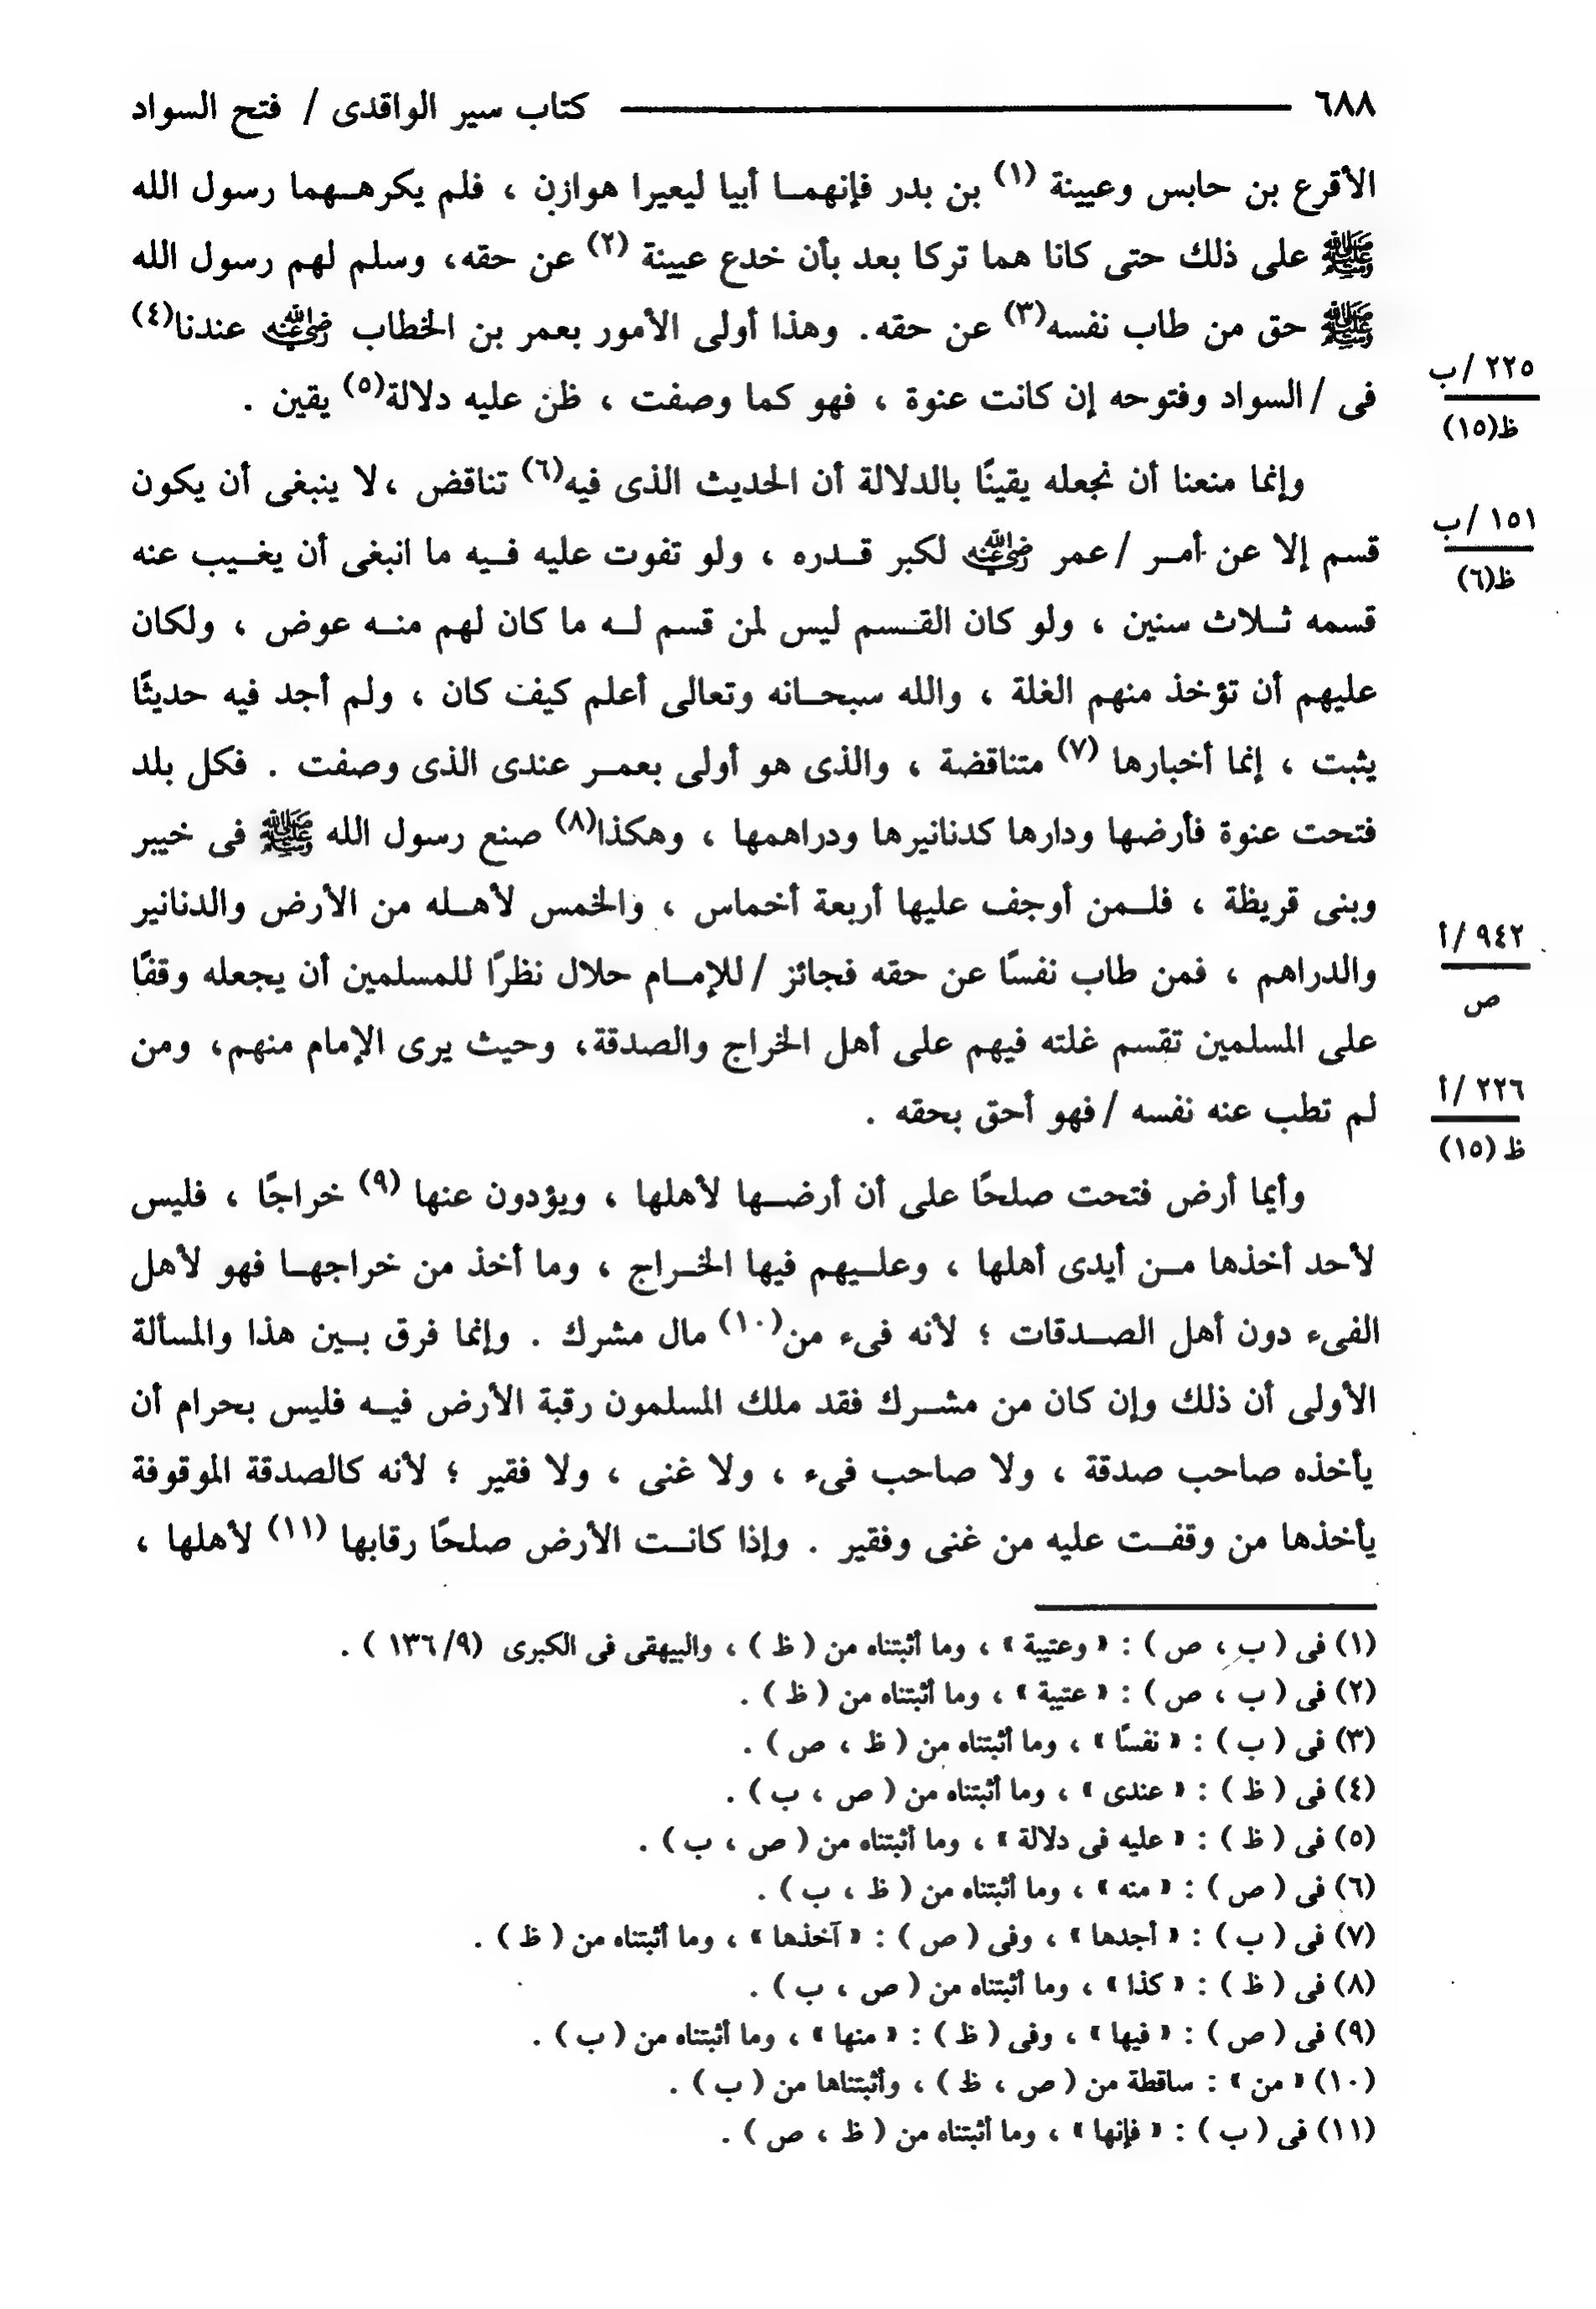 ٦٨٨ كتاب سير الواقدى / فتح السواد
الأقرع بن حابس وعيينة (١) بن بدر فإنهمـا أبيا ليعيرا هوازن ، فلم يكرهـهما رسول الله
ﷺ على ذلك حتى كانا هما تركا بعد بأن خدع عيينة (٢) عن حقه، وسلم لهم رسول الله
ﷺ حق من طاب نفسه(٣) عن حقه. وهذا أولى الأمور بعمر بن الخطاب رضي الله عنه عندنا(٤)
فى /السواد وفتوحه إن كانت عنوة ، فهو كما وصفت ، ظن عليه دلالة(٥) يقين .
٢٢٥ /ب
ظ(١٥)
وإنما منعنا أن نجعله يقينًا بالدلالة أن الحديث الذى فيه(٦) تناقض ،لا ينبغى أن يكون
قسم إلا عن أمـر /عمر رضي الله عنه لكبر قـدره ، ولو تفوت عليه فـيه ما انبغى أن يغـيب عنه
١٥١ /ب
ظ(٦)
قسمه ثـلاث سنين ، ولو كان القـسم ليس لمن قسم لـه ما كان لهم منـه عوض ، ولكان
عليهم أن تؤخذ منهم الغلة ، والله سبحـانه وتعالى أعلم كيف كان ، ولم أجد فيه حديثًا
يثبت ، إنما أخبارها (٧) متناقضة ، والذى هو أولى بعمـر عندى الذى وصفت . فكل بلد
فتحت عنوة فأرضها ودارها كدنانيرها ودراهمها ، وهكذا(٨) صنع رسول الله ﷺ فى خيبر
وبنى قريظة ، فلـمن أوجف عليها أربعة أخماس ، والخمس لأهـله من الأرض والدنانير
والدراهم ، فمن طاب نفسًا عن حقه فجائز /للإمـام حلال نظرًا للمسلمين أن يجعله وقفًا
٩٤٢ /أ
ص
على المسلمين تقسم غلته فيهم على أهل الخراج والصدقة، وحيث يرى الإمام منهم، ومن
لم تطب عنه نفسه /فهو أحق بحقه .
٢٢٦ /أ
ظ (١٥)
وأيما أرض فتحت صلحًا على أن أرضـها لأهلها ، ويؤدون عنها (٩) خراجًا ، فليس
لأحد أخذها مـن أيدى أهلها ، وعلـيهم فيها الخـراج ، وما أخذ من خراجهـا فهو لأهل
الفىء دون أهل الصـدقات ؛ لأنه فىء من(١٠) مال مشرك . وإنما فرق بـين هذا والمسألة
الأولى أن ذلك وإن كان من مشـرك فقد ملك المسلمون رقبة الأرض فيـه فليس بحرام أن
يأخذه صاحب صدقة ، ولا صاحب فىء ، ولا غنى ، ولا فقير ؛ لأنه كالصدقة الموقوفة
يأخذها من وقفـت عليه من غنى وفقير . وإذا كانـت الأرض صلحًا رقابها (١١) لأهلها ،
(١) فى ( ب ، ص ) : « وعتيبة » ، وما أثبتناه من ( ظ ) ، والبيهقى فى الكبرى (١٣٦/٩ ) .
(٢) فى ( ب ، ص ) : « عتيبة » ، وما أثبتناه من ( ظ ) .
(٣) فى ( ب ) : « نفسًا » ، وما أثبتناه من ( ظ ، ص ) .
(٤) فى ( ظ ) : « عندى » ، وما أثبتناه من ( ص ، ب ) .
(٥) فى ( ظ ) : « عليه فى دلالة » ، وما أثبتناه من ( ص ، ب ) .
(٦) فى ( ص ) : « منه » ، وما أثبتناه من ( ظ ، ب ) .
(٧) فى ( ب ) : « أجدها » ، وفى ( ص ) : « آخذها » ، وما أثبتناه من ( ظ ) .
(٨) فى ( ظ ) : « كذا » ، وما أثبتناه من ( ص ، ب ) .
(٩) فى ( ص ) : « فيها » ، وفى ( ظ ) : « منها » ، وما أثبتناه من ( ب ) .
(١٠) « من » : ساقطة من ( ص ، ظ ) ، وأثبتناها من ( ب ) .
(١١) فى ( ب ) : « فإنها » ، وما أثبتناه من ( ظ ، ص ) .